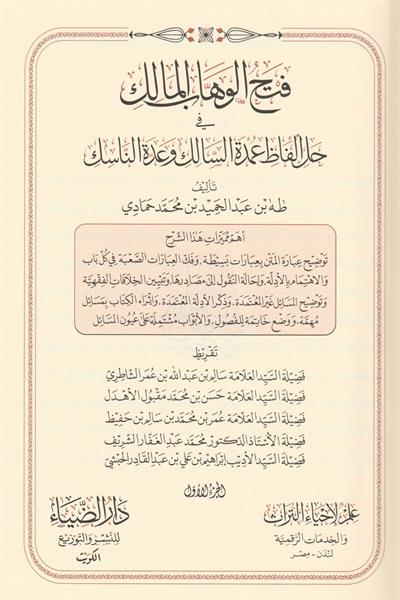 فتح الوهاب المالك
في
حل ألفاظ عمدة السالك وعدة الناسك
تأليف
طه بن عبد الحميد بن محمد حمادي
أهم مميزات هذا الشرح
توضيح عبارة المتن بعبارات بسيطة، وفك العبارات الصعبة في كل باب
والاهتمام بالأدلة، وإحالة النقول إلى مصادرها، وتبيين الخلافات الفقهية
وتوضيح المسائل غير المعتمدة، وذكر الأدلة المعتمدة، وإثراء الكتاب بمسائل
مهمة، ووضع خاتمة للفصول، والأبواب مشتملة على عيون المسائل
تقريظ
فضيلة السيد العلامة سالم بن عبد الله بن عمر الشاطري
فضيلة السيد العلامة حسن بن محمد مقبول الأهدل
فضيلة السيد العلامة عمر بن محمد بن سالم بن حفيظ
فضيلة الأستاذ الدكتور محمد عبد الغفار الشريف
فضيلة السيد الأديب إبراهيم بن علي بن عبد القادر الحبشي
الجزء الأول
علم لإحياء التراث
والخدمات الرقمية
لندن - مصر
دار الضياء
للنشر والتوزيع
الكويت